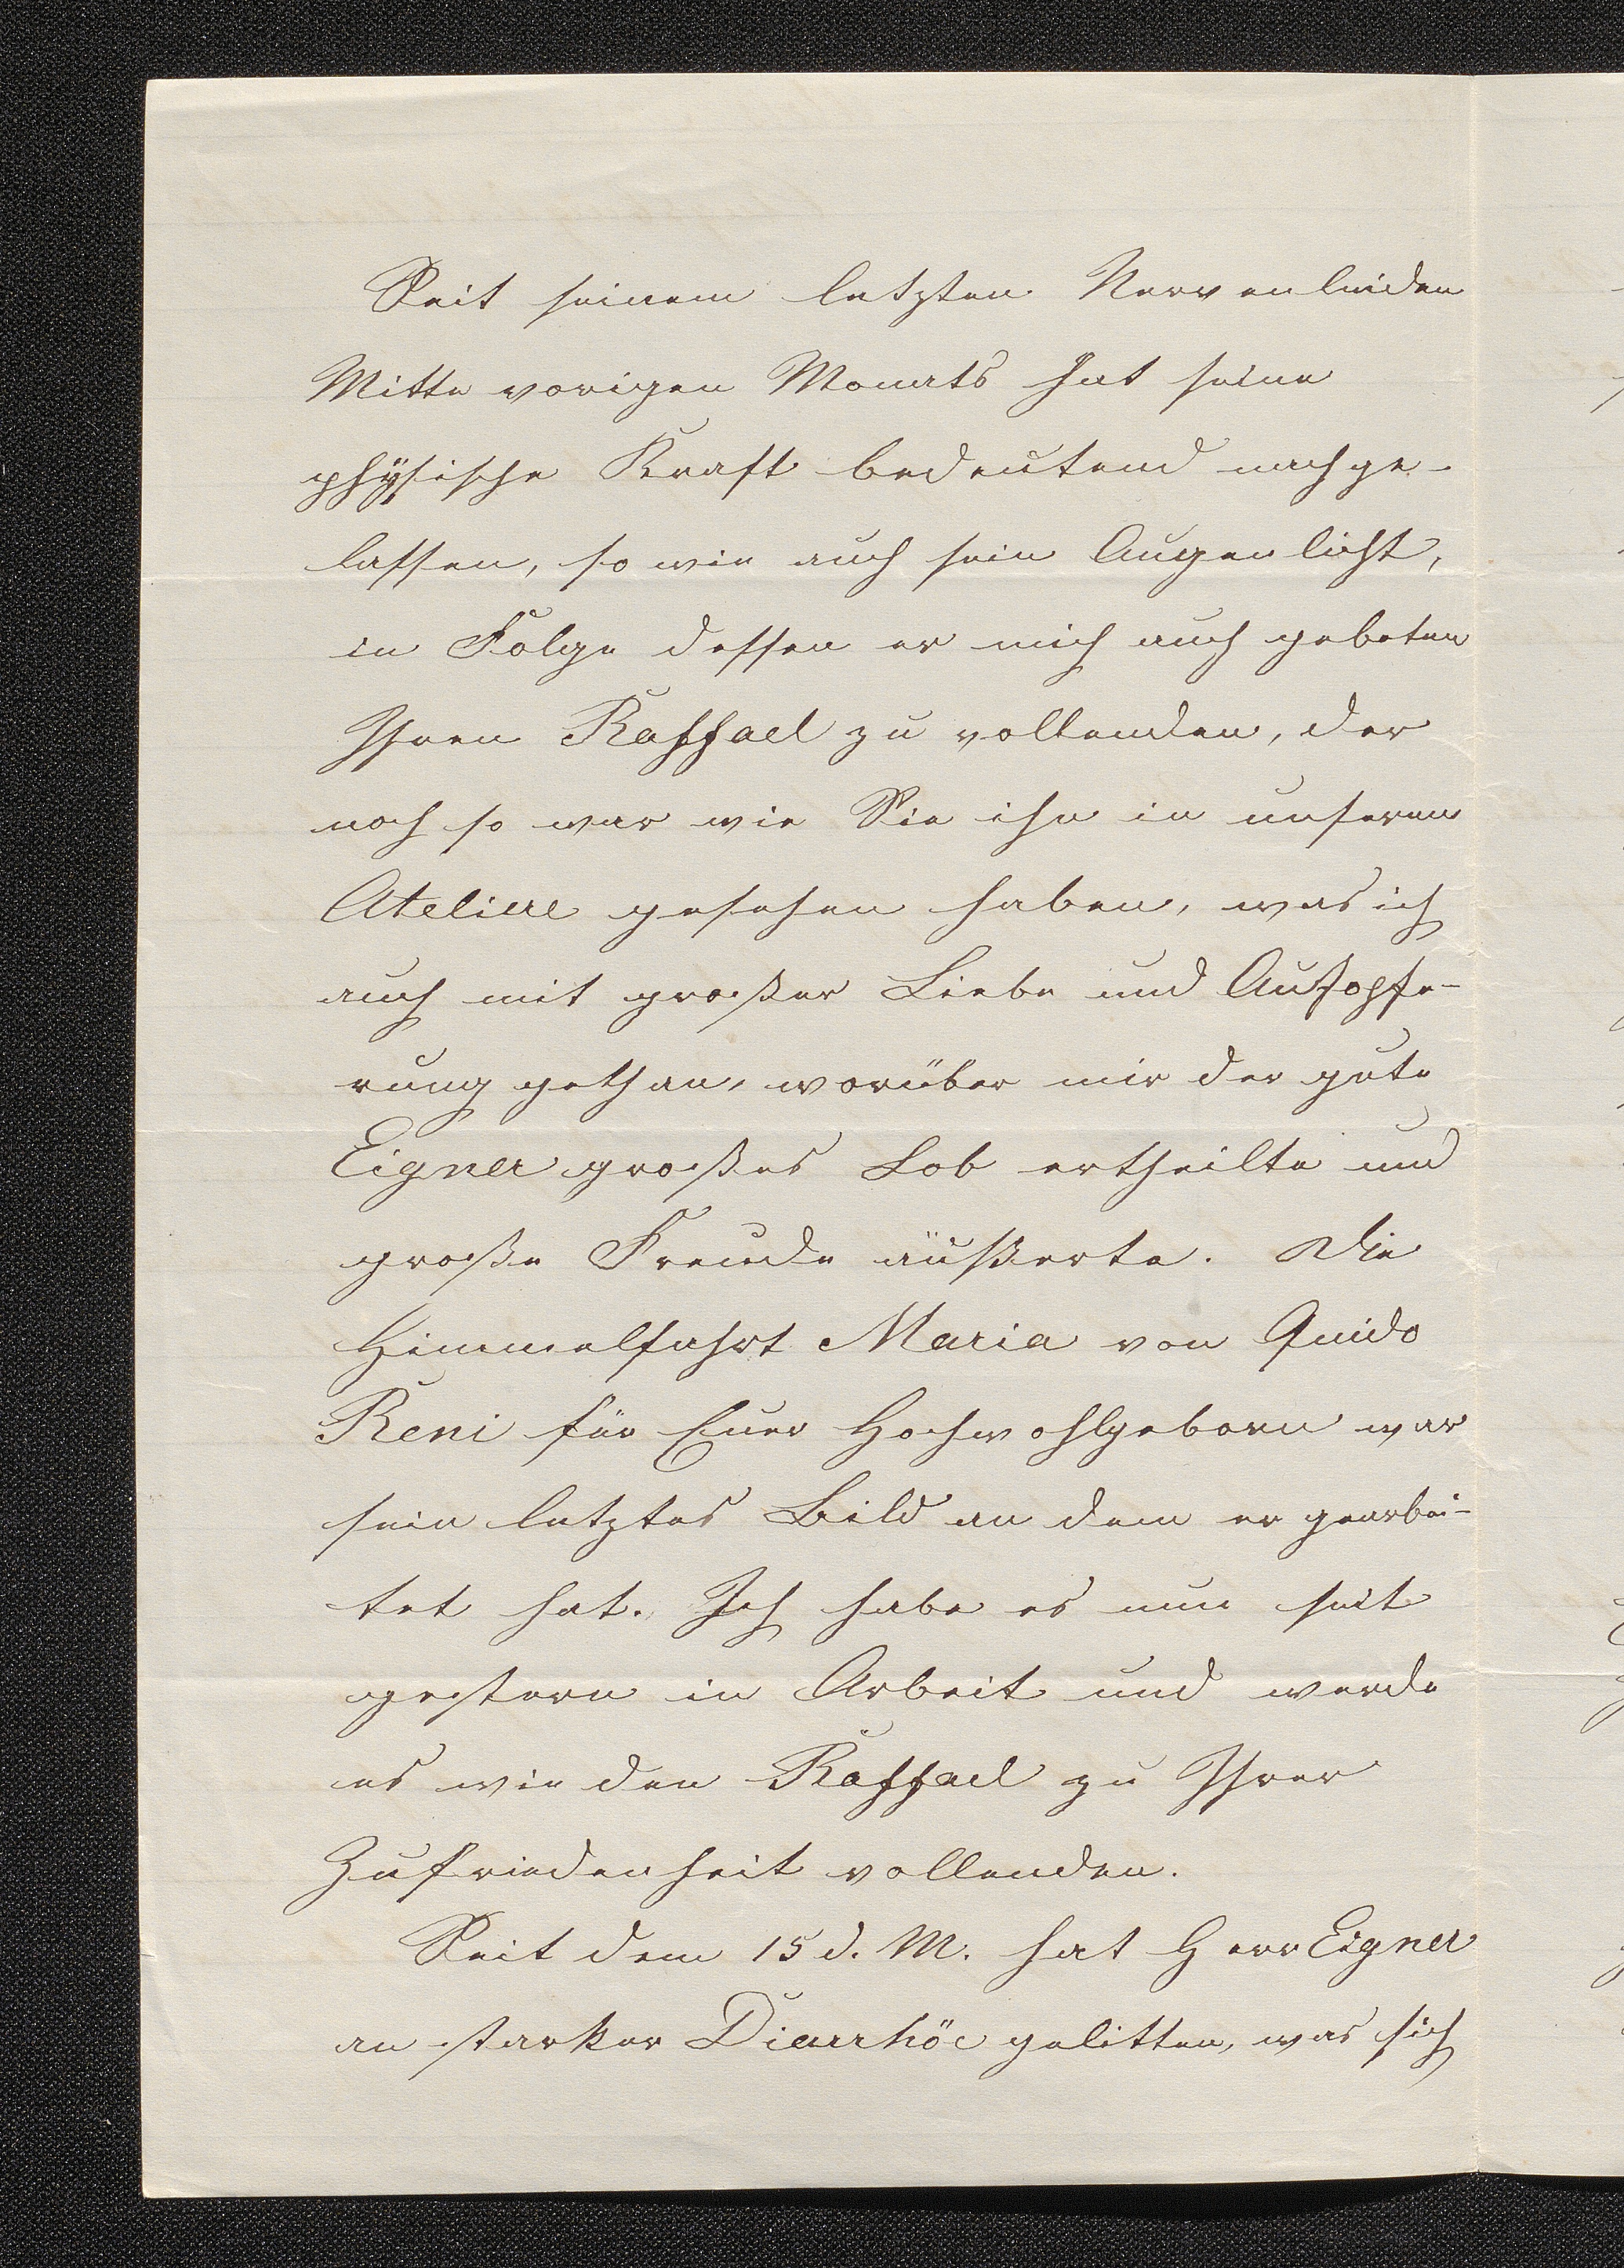 Seit seinem letzten Nervenleiden
Mitte vorigen Monats hat seine
physische Kraft bedeutend nachge-
lassen, so wie auch sein Augenlicht,
in Folge dessen er mich auch gebeten
Ihren Raffael zu vollenden, der
noch so war wie Sie ihn in unserem
Atelier gesehen haben, was ich
auch mit großer Liebe und Aufopfe-
rung gethan, worüber mir der gute
Eigner großes Lob ertheilte und
große Freude äußerte. Die
Himmelfahrt Maria von Guido
Reni für Euer Hochwohlgeborn war
sein letztes Bild an dem er gearbei-
tet hat. Ich habe es nun seit
gestern in Arbeit und werde
es wie den Raffael zu Ihrer
Zufriedenheit vollenden.
Seit dem 15 d. M. hat Herr Eigner
an starker Diarrhöe gelitten, was sich